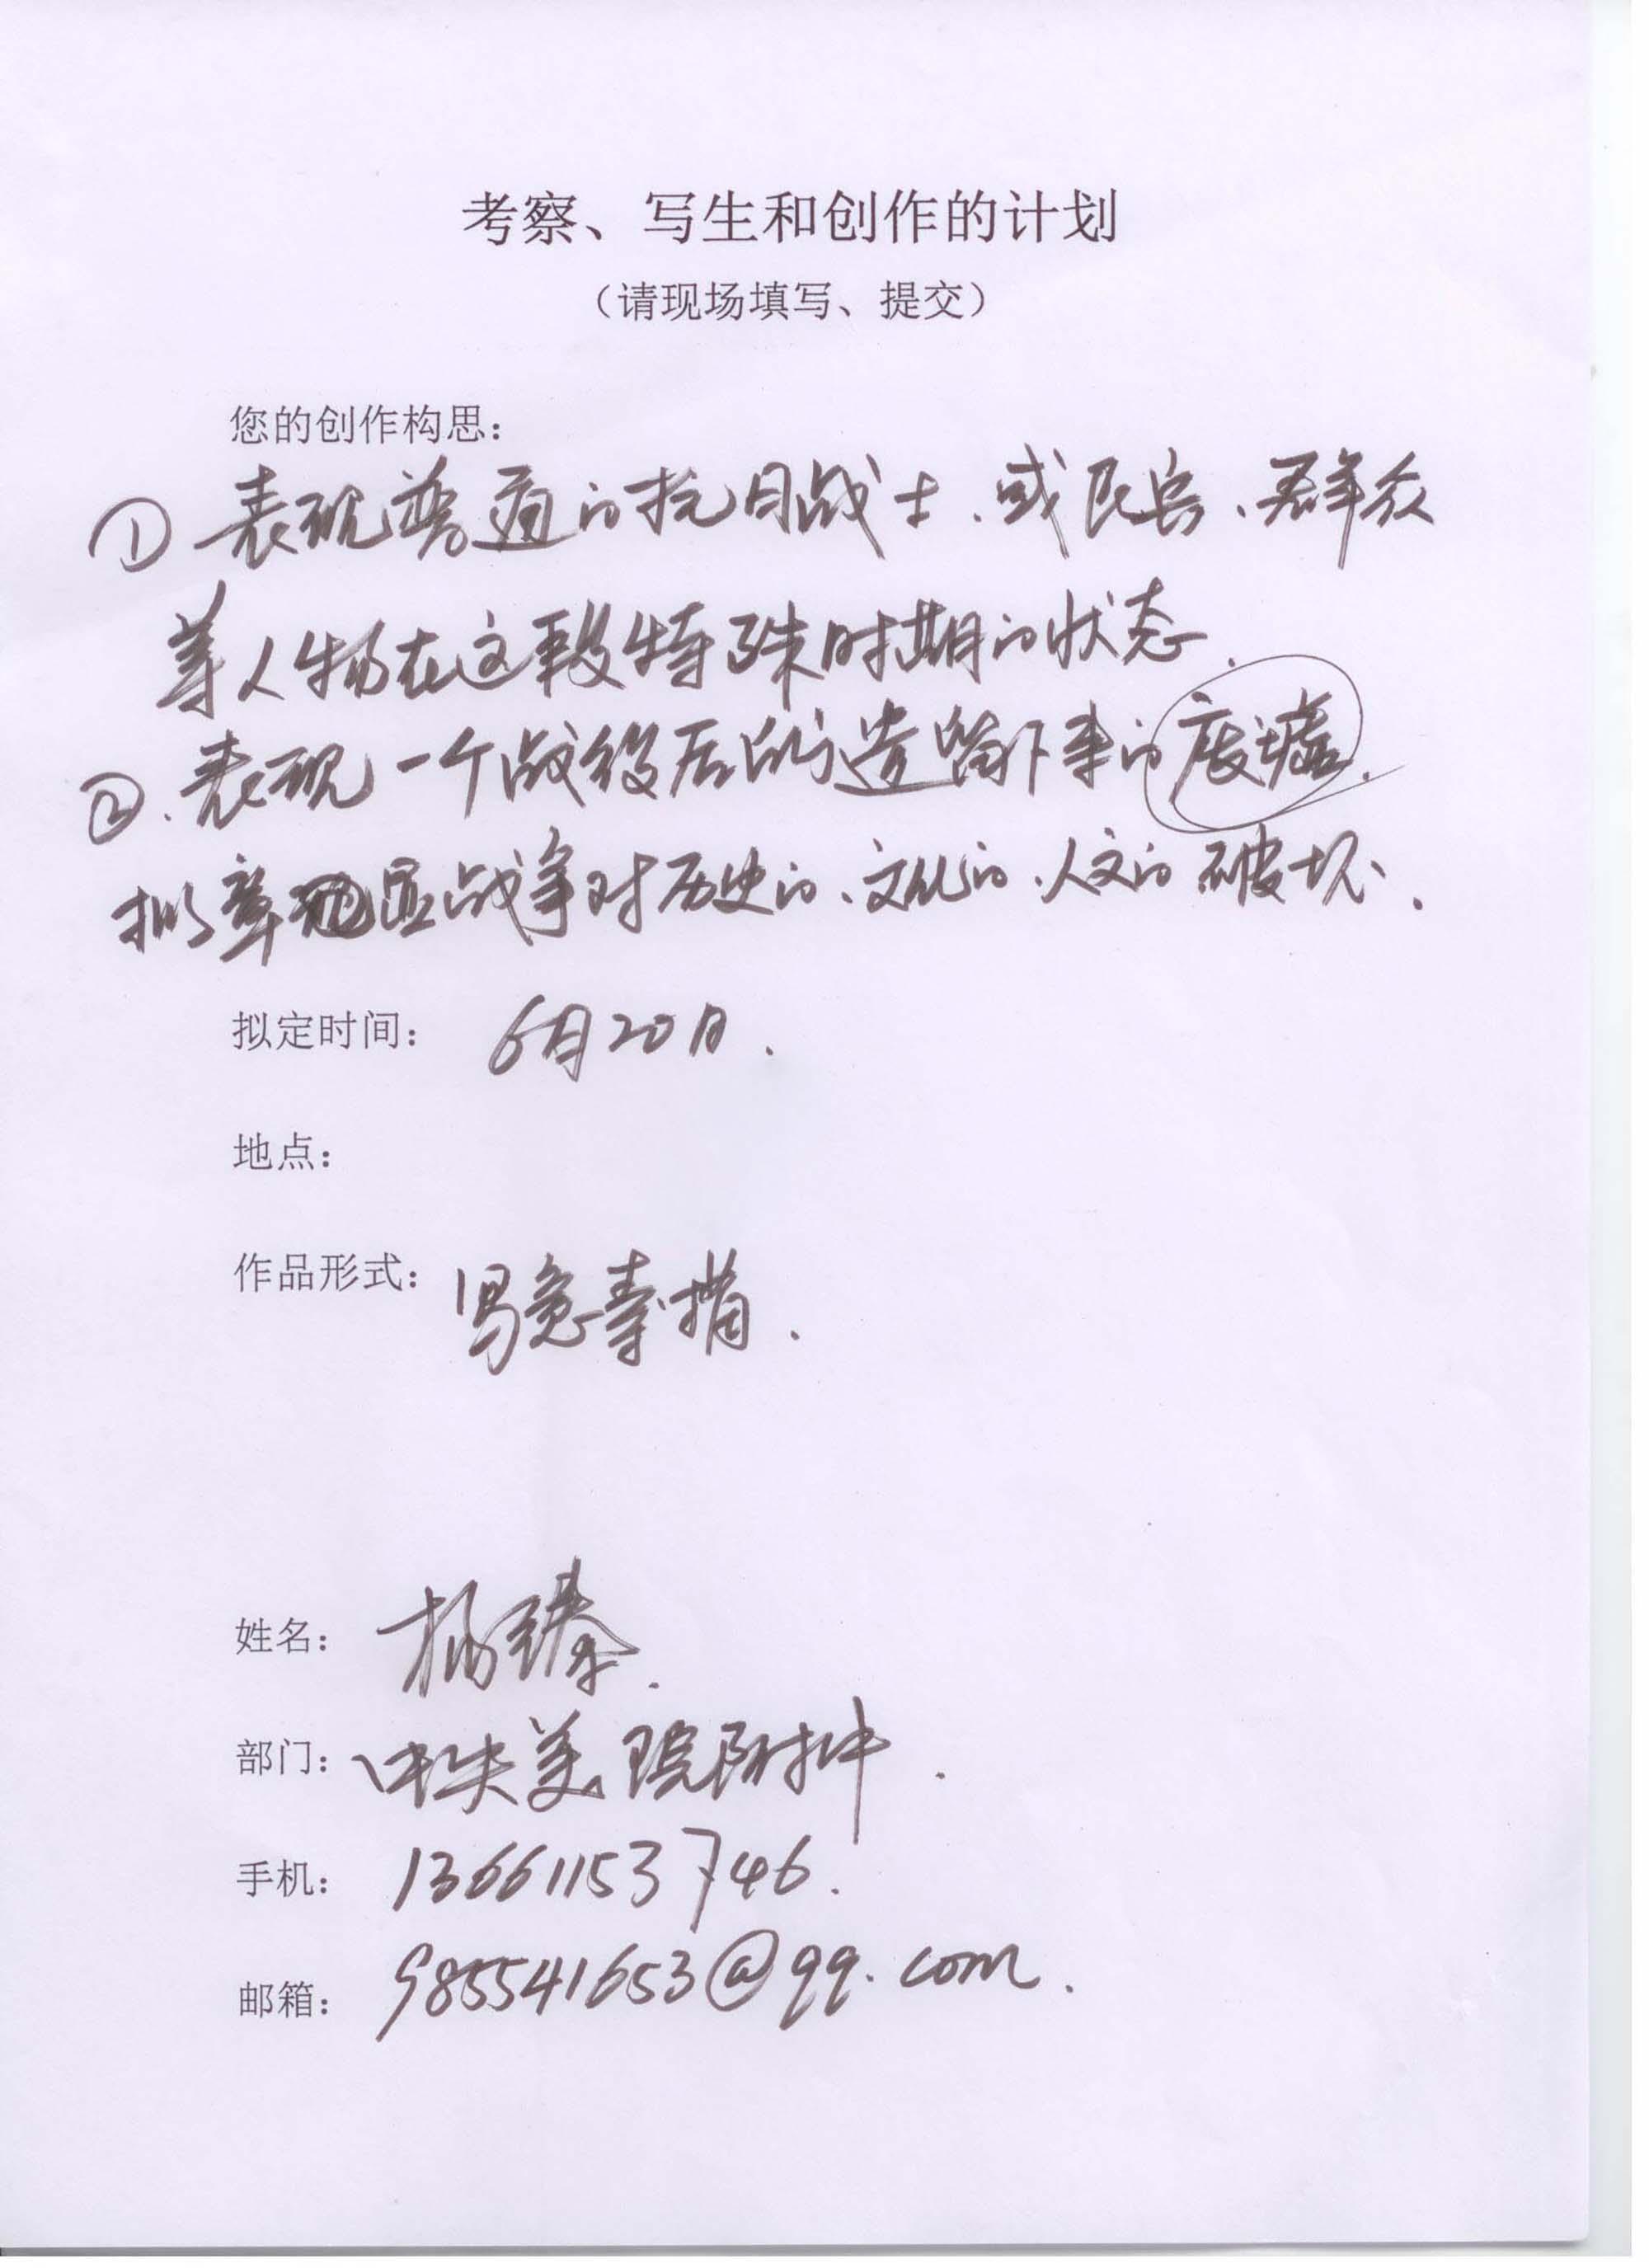 考察、写生和创作的计划
（请现场填写、提交）
您的创作构思：
① 表现普通的抗日战士、或民兵、群众
等人物在这段特殊时期的状态.
②、表现一个战役后的遗留下来的废墟.
战争对历史的、文化的、人文的破坏.
拟定时间： 6月20日.
地点：
作品形式： 写意素描.
姓名： 杨臻.
部门： 中央美院附中.
手机： 13661153746.
邮箱： 985541653@qq.com.